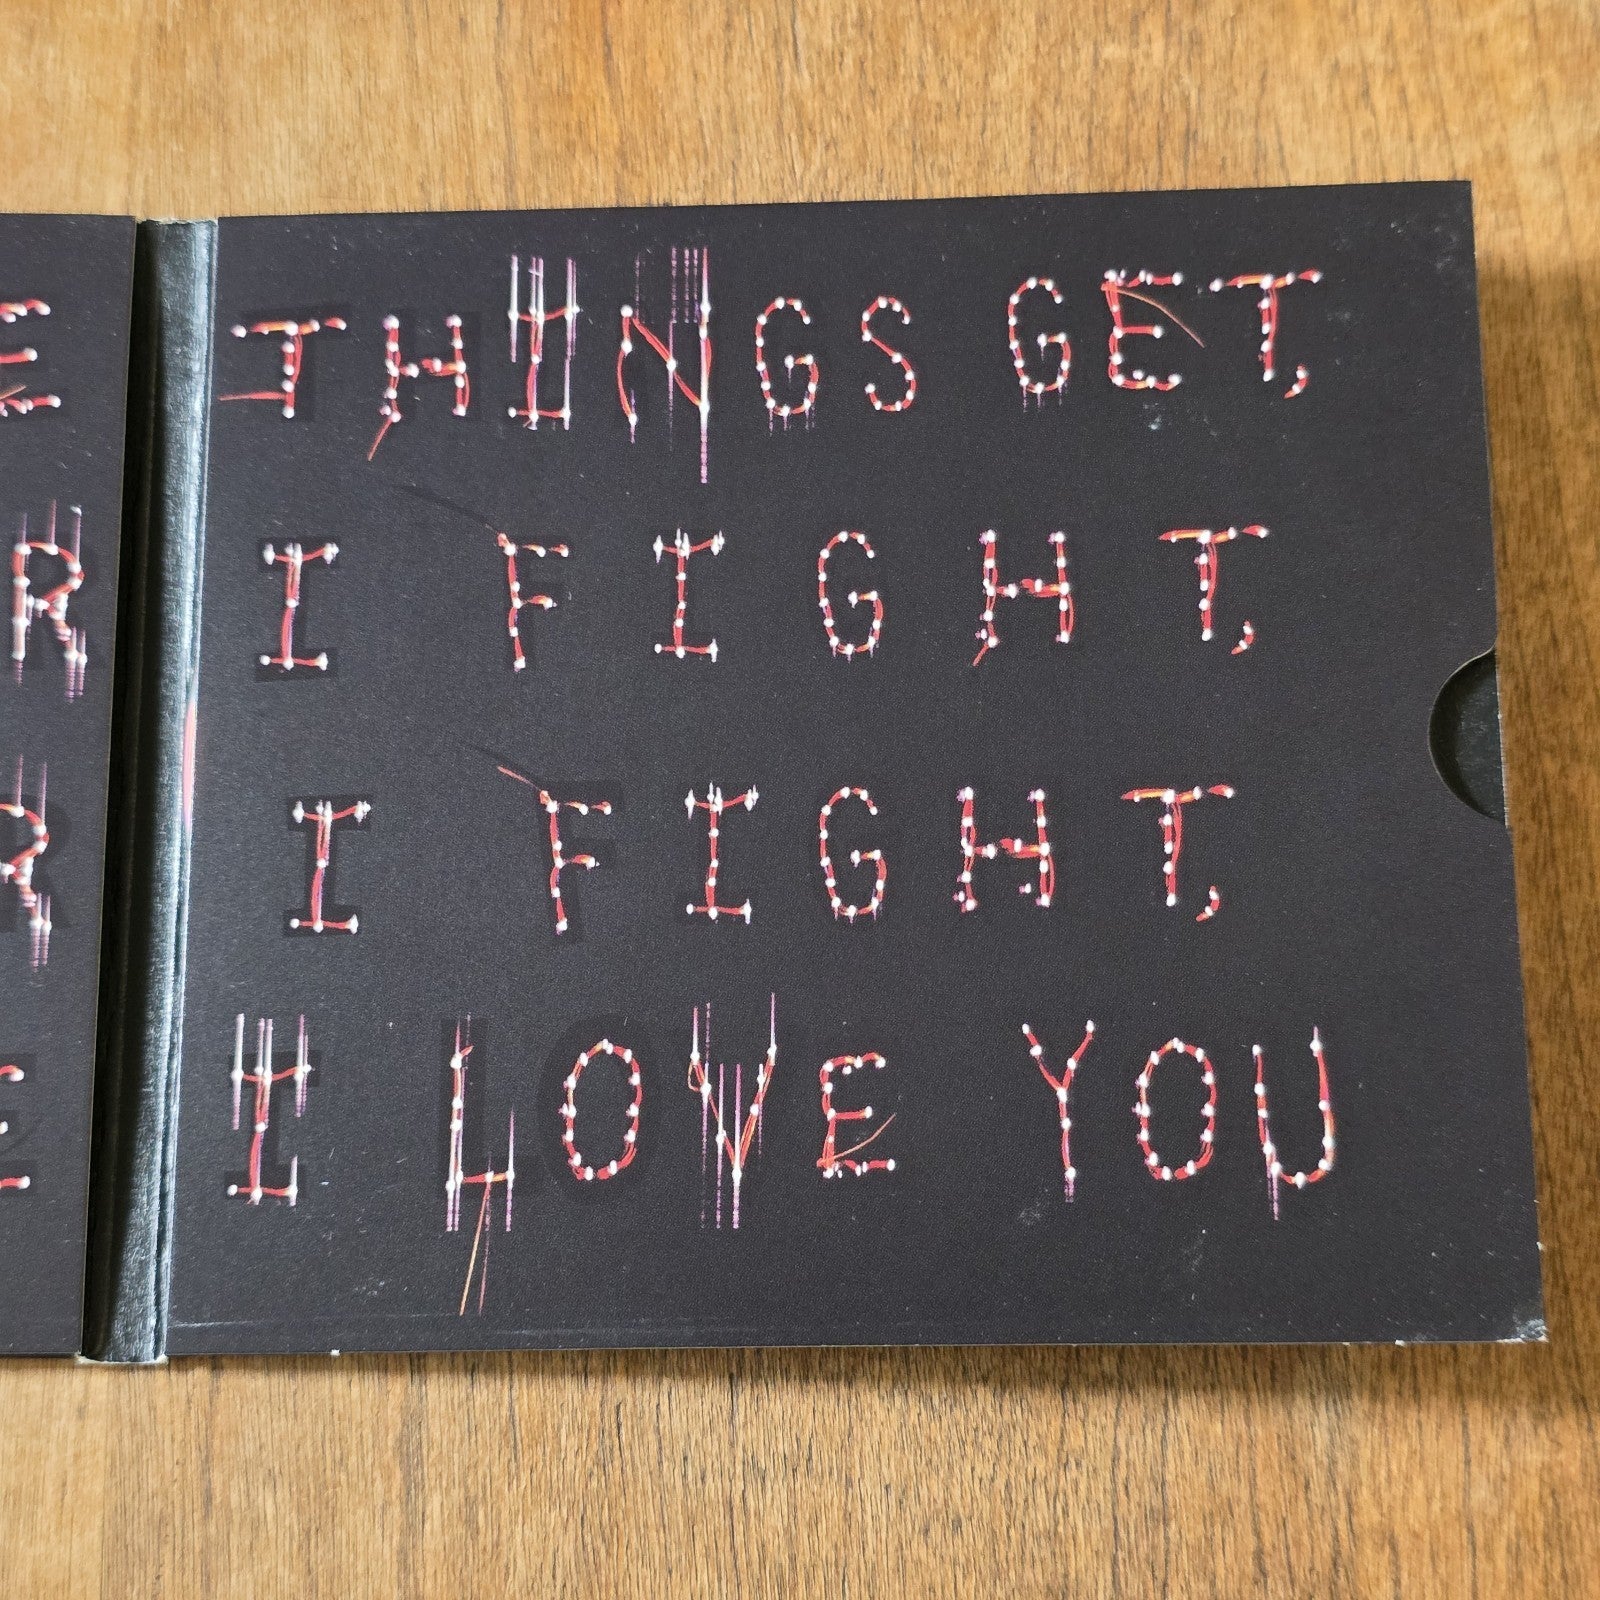 THINGS GET,
I FIGHT,
I FIGHT,
I LOVE YOU